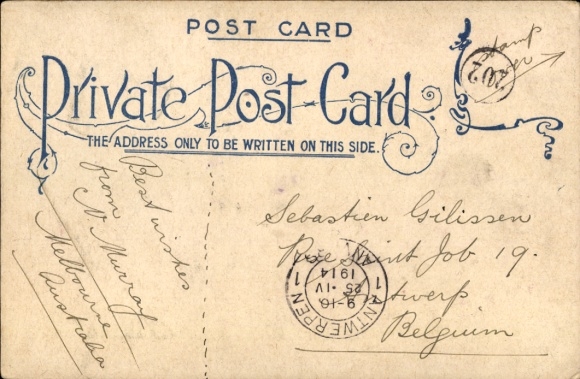 POST CARD
Private Post Card
THE ADDRESS ONLY TO BE WRITTEN ON THIS SIDE.
stamp
over
202
Best wishes
from
N. Murray
Melbourne
Australia
Sebastien Gilissen
Rue Saint Job 19.
Antwerp
Belguim
1 ANTWERPEN 1
9-10
25 · IV
1914